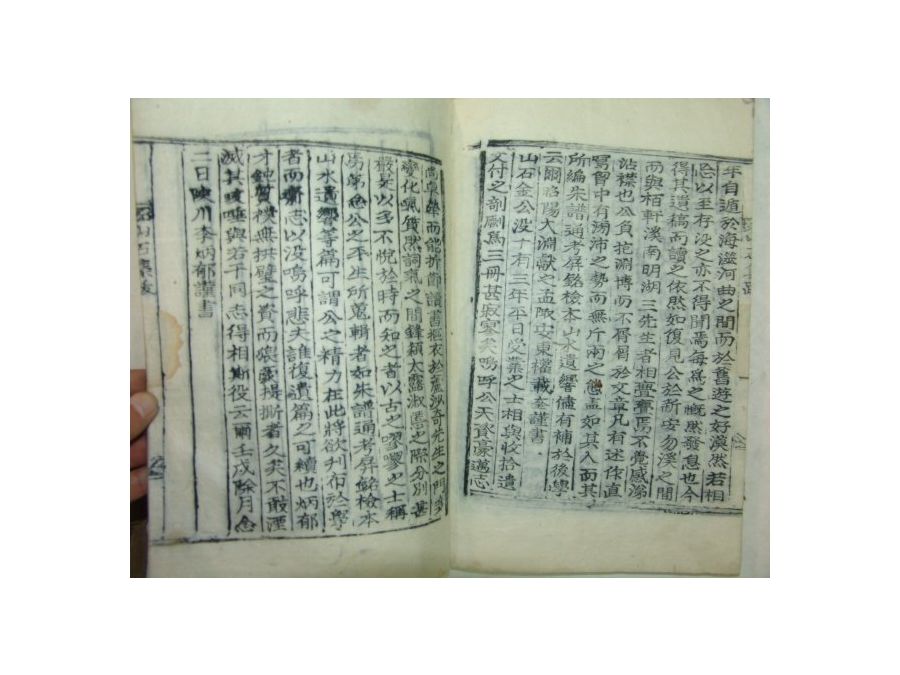 年自遁於海滋河曲之間而於舊遊之好漠然若相
忘以至存沒之亦不得聞焉每爲之慨然發息也今
得其遺稿而讀之依然如復見公於新安勿溪之間
而與栢軒溪南明湖三先生者相亹亹焉不覺感涕
沾襟也公負抱淵博而不屑屑於文章凡有述作直
寫胷中有沛之勢而無斤兩之態盖如其人而其
所編朱譜通考屏銘檢本山水遺響儘有補於後學
云爾陽大淵獻之孟陬安東權載奎謹書
山石金公沒十有三年平日受業之士相與收拾遺
文付之剞劂爲三冊甚寂寞矣嗚呼公天資豪邁志
而能折節讀書摳衣於蘆沙奇先生之門
變化氣質然詞氣之間鋒穎太露淑慝之際分別甚
嚴是以多不悅於時而知之者以古之嘐嘐之士稱
焉第念公之平生所蒐輯者如朱譜通考屏銘檢本
山水遺響等篇可謂公之精力在此將欲刋布於學
者而齎志以沒嗚呼悲夫誰復遺篇之可續也炳郁
才鈍質樸無拱璧之資而蒙提撕者久矣不敢湮
滅其咳唾與若干同志得相斯役云爾壬戌除月念
二日陜川李炳郁謹書
山石集跋